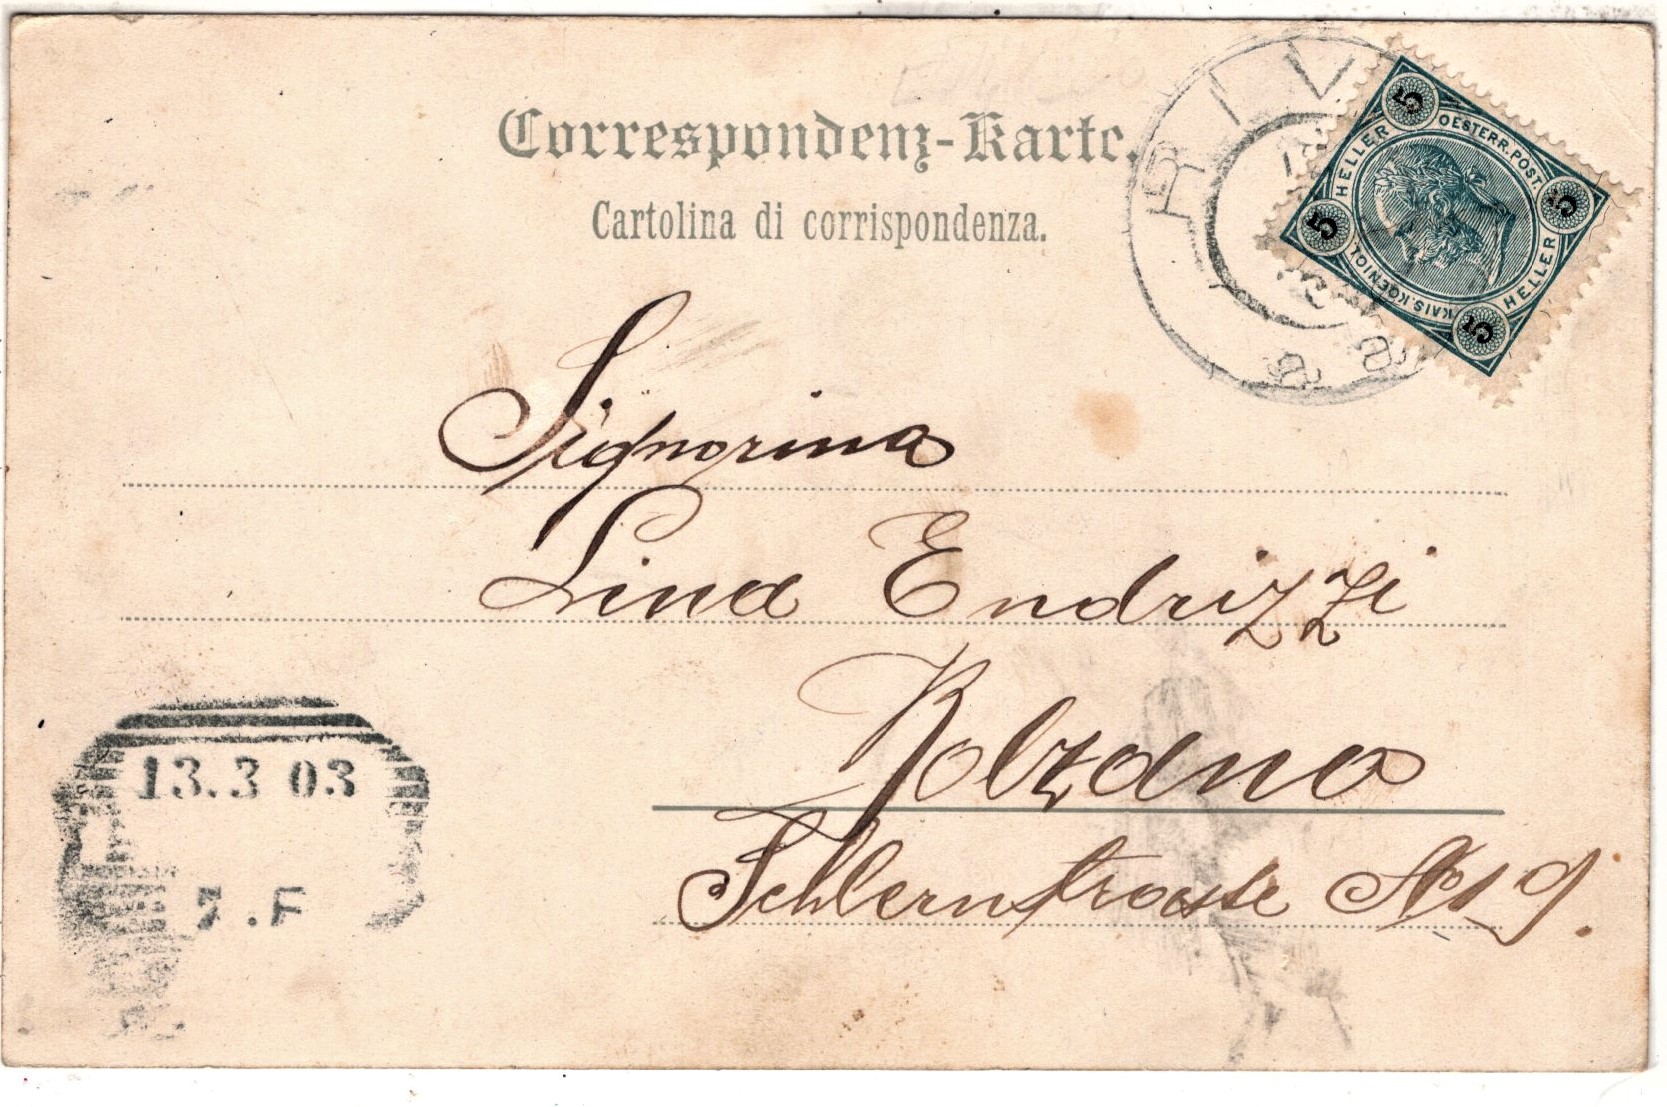 Correspondenz-Karte.
Cartolina di corrispondenza.
RIV
5 5 5 5
HELLER
OESTERR. POST.
HELLER
KAIS. KOENIGL.
Signorina
Lina Endrizzi
Bolzano
Schlernstrasse No 9.
13.3 03
7.F